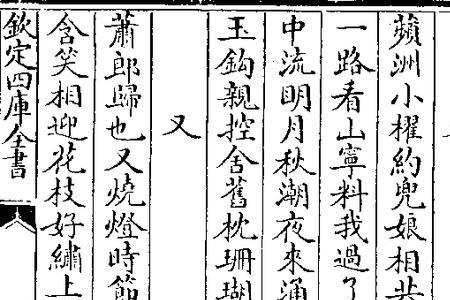 蘋洲小櫂約兜娘相共
一路看山寧料我過了
中流明月秋潮夜來湧
玉鈎親控舍舊枕珊瑚
又
蕭郎歸也又燒燈時節
含笑相迎花枝好繡上
欽定四庫全書